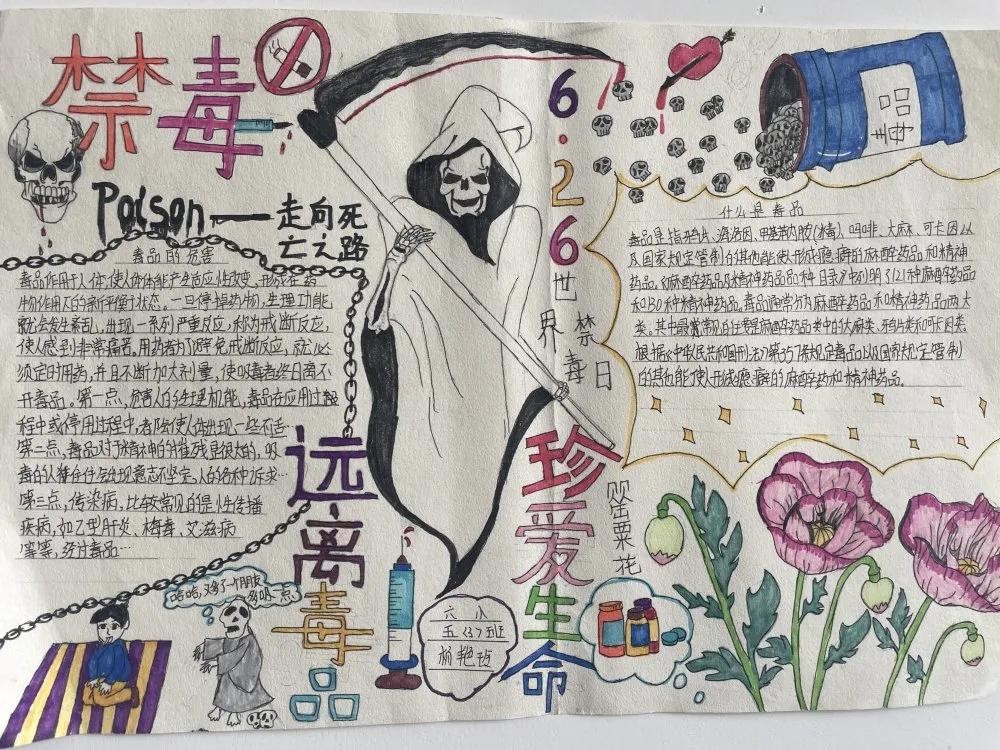 禁毒
Poison——走向死
亡之路
毒品的危害
毒品作用于人体,使人体体能产生适应性改变,形成在药
物作用下的新平衡状态。一旦停掉药物,生理功能
就会发生紊乱,出现一系列严重反应,称为戒断反应,
使人感到非常痛苦。用药者为了避免戒断反应,就必
须定时用药,并且不断加大剂量,使吸毒者终日离不
开毒品。第一点,危害人的生理机能,毒品在应用过
程中或停用过程中,都会使人体出现一些不适…
第二点,毒品对于精神的摧残是很大的,吸
毒的人往往会出现意志不坚定,人的各种诉求…
第三点,传染病,比较常见的是性传播
疾病,如乙型肝炎、梅毒、艾滋病
等等,经过毒品…
6.26
世界禁毒日
毒品
什么是毒品
毒品是指鸦片、海洛因、甲基苯丙胺(冰毒)、吗啡、大麻、可卡因以
及国家规定管制的其他能使人形成瘾癖的麻醉药品和精神
药品。《麻醉药品及精神药品品种目录》中列明了121种麻醉药品
和130种精神药品。毒品通常分为麻醉药品和精神药品两大
类。其中最常见的主要是麻醉药品类中的大麻类、鸦片类和可卡因类。
根据《中华人民共和国刑法》第357条规定毒品以及国家规定管制
的其他能使人形成瘾癖的麻醉药和精神药品。
远离毒品
珍爱生命
罂粟花
哈哈,又多了一个朋友
多吸一点
六、八
五(3)班